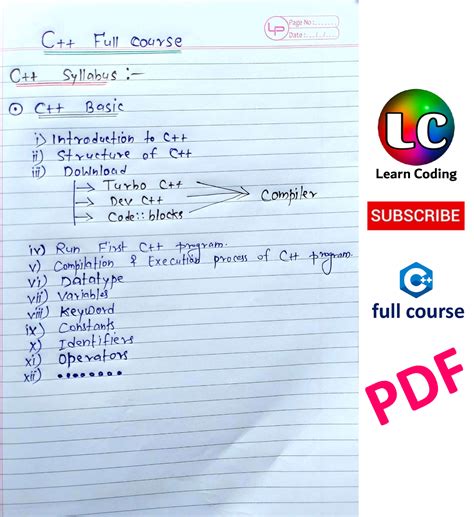 C++ Full course
LP
Page No:......
Date:../../...
C++ Syllabus :-
C++ Basic
i) Introduction to C++
ii) Structure of C++
iii) Download
Turbo C++
Dev C++
Code::blocks
Compiler
iv) Run First C++ program.
v) Compilation & Execution process of C++ program.
vi) Datatype
vii) Variables
viii) Keyword
ix) Constants
x) Identifiers
xi) Operators
xii) ........
LC
Learn Coding
SUBSCRIBE
C++
full course
PDF